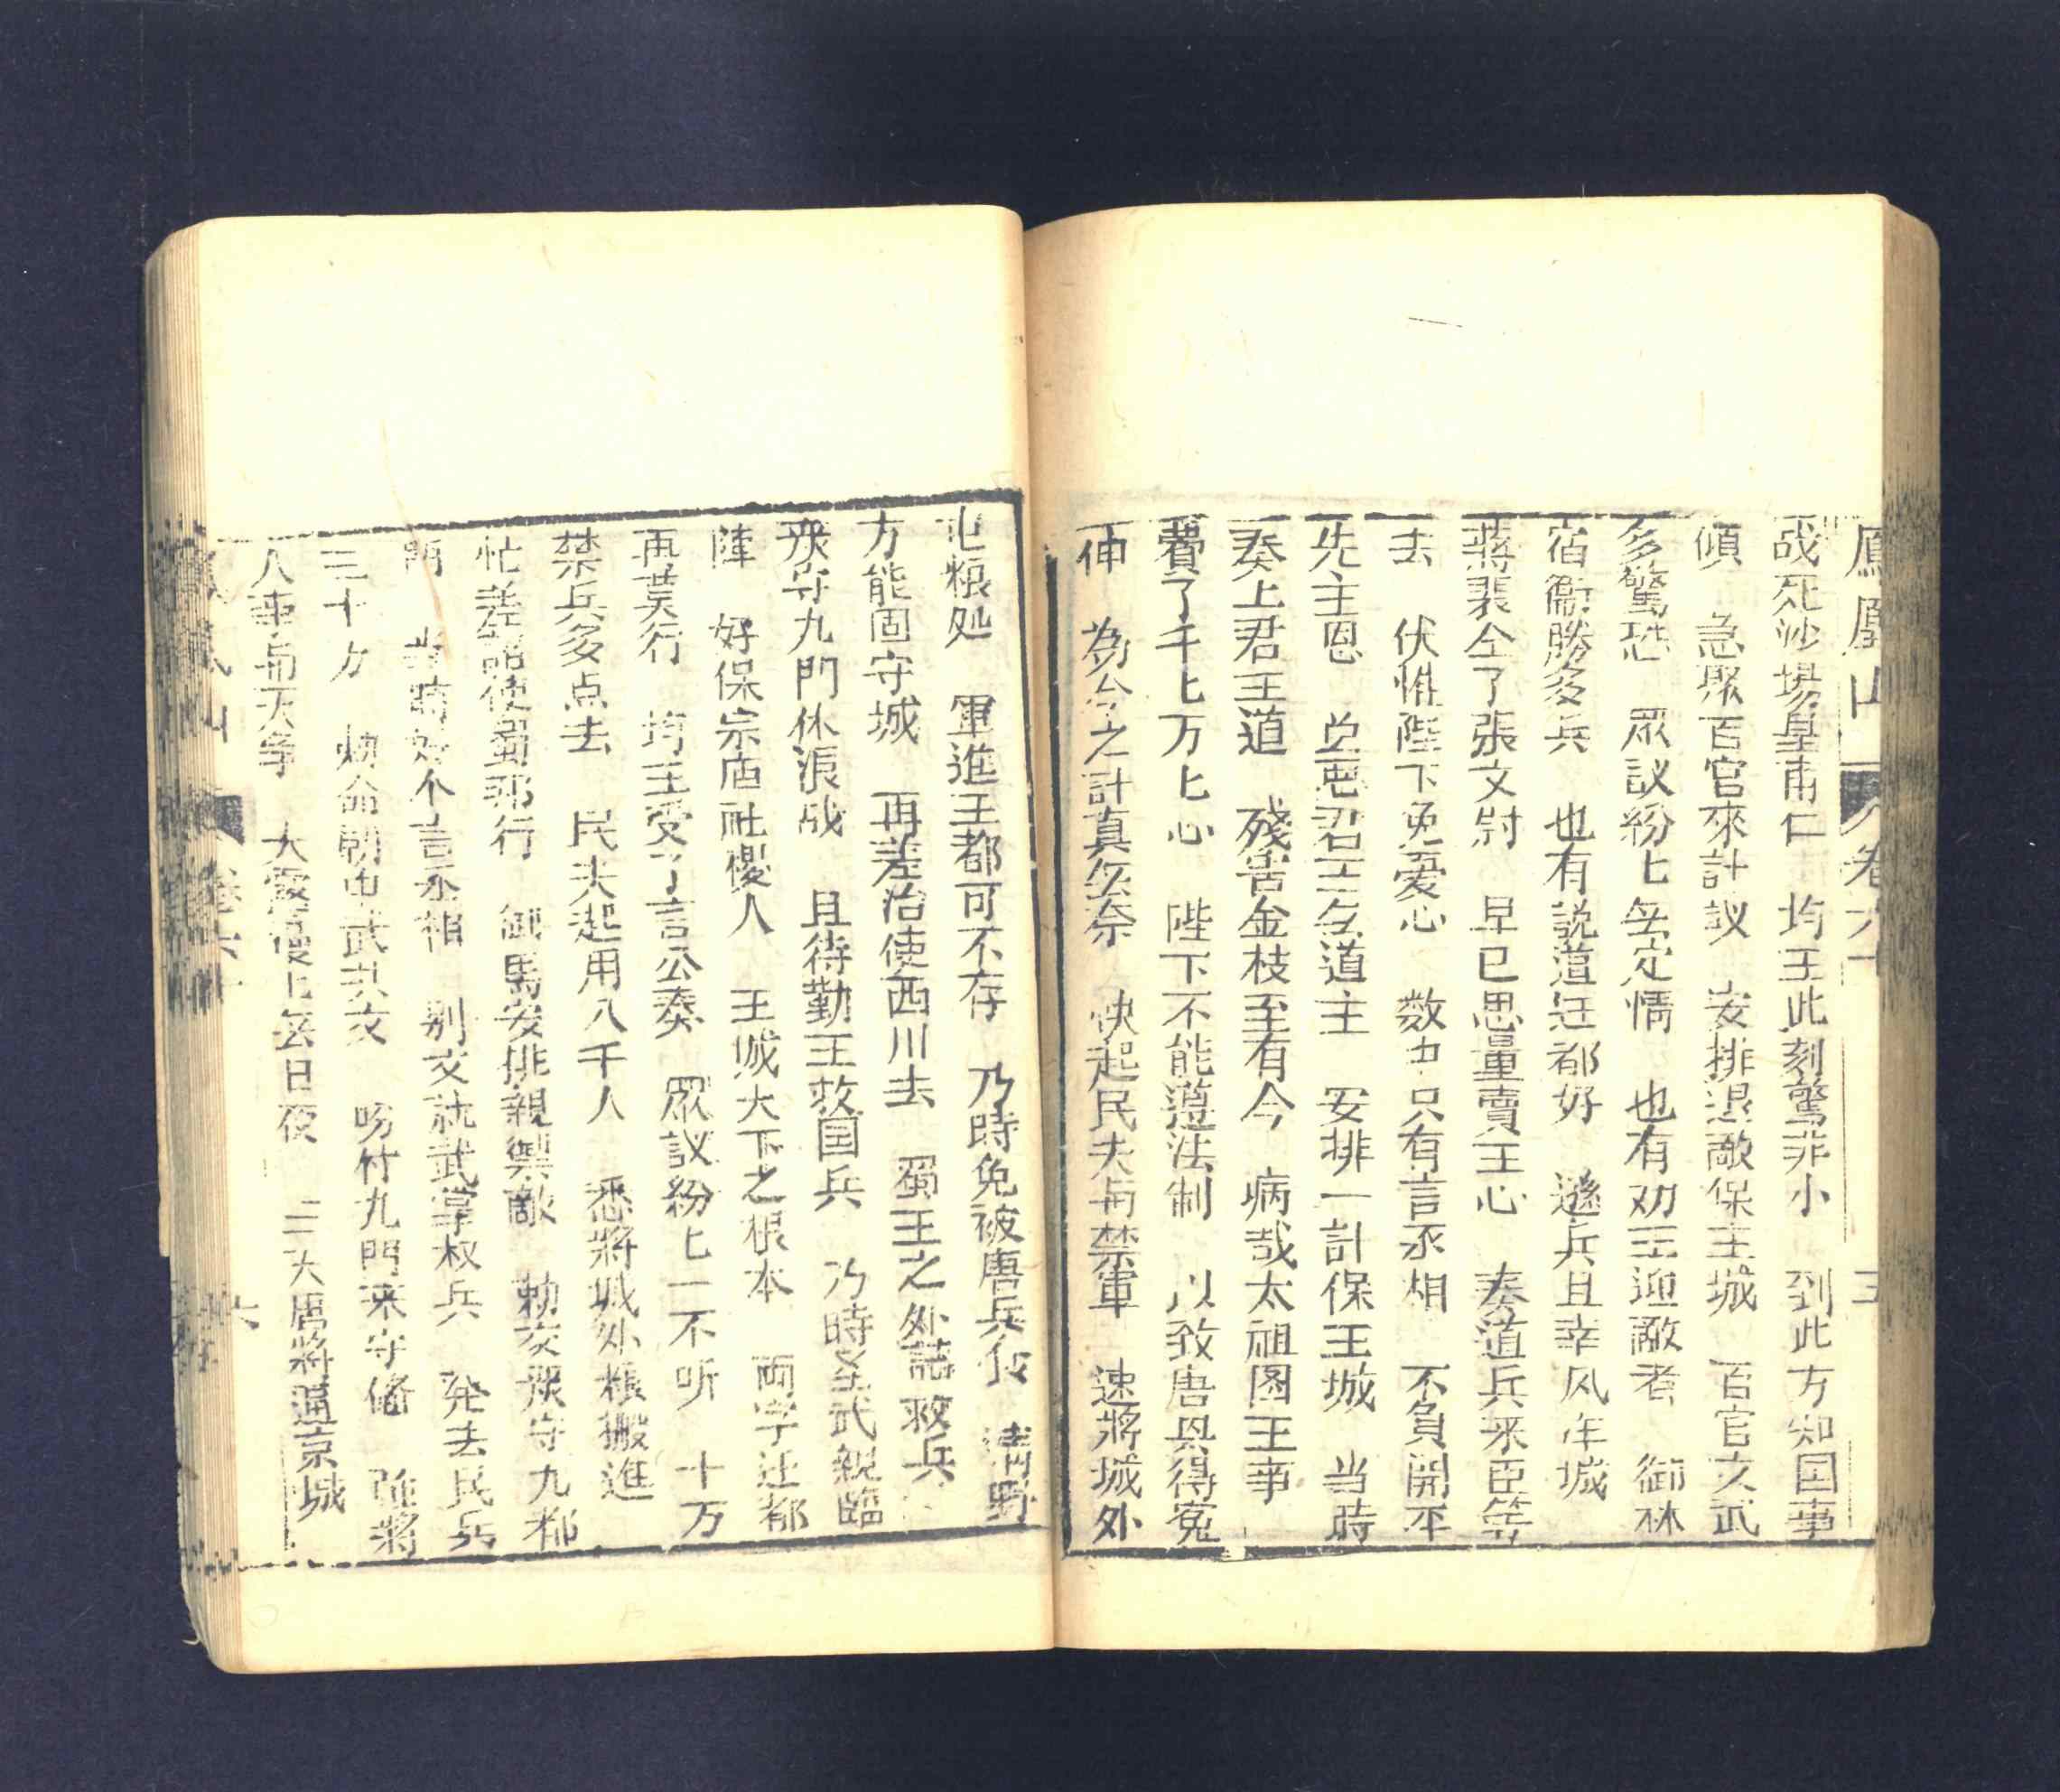 鳳凰山 卷六十 五
战死沙場皇甫仁 均王此刻驚非小 到此方知囯事
傾 急聚百官來計議 安排退敵保主城 百官文武
多驚恐 眾議紛匕無定情 也有劝王迎敵者 御林
宿衞勝多兵 也有説道迁都好 遜兵且幸风年城
蔣裴仝了張文尉 早已思量賣王心 奏道兵来臣等
去 伏惟陛下免爱心 数中只有言丞相 不負開平
先主恩 王无道主 安排一計保王城 当時
奏上君王道 殘害金枝至有今 病哉太祖图王事
費了千匕万匕心 陛下不能遵法制 以致唐具得寃
伸 為今之計真无奈 快起民夫与禁軍 速將城外
屯粮处 軍進王都可不存 乃時免被唐兵 清野
方能固守城 再差治使西川去 蜀王之处請救兵
严守九門休浪战 且待勤王救国兵 乃時圣武親臨
陣 好保宗庙社稷人 王城大下之根本 両字迁都
再莫行 均王受了言公奏 眾議紛匕一不听 十万
禁兵多点去 民夫起用八千人 悉將城外粮搬進
忙差能使蜀邦行 御馬安排親禦敵 勅友严守九都
門 当時好个言丞相 别文就武掌权兵 発去民兵
三十万 勅命朝中武共文 吩付九門来守俻 強將
人事与天争 大雪漫匕無日夜 二大唐將逼京城
卷六十 六